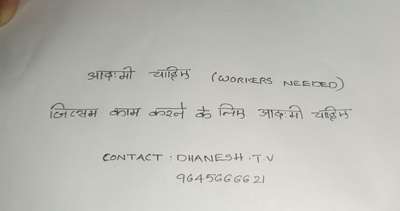 आदमी चाहिए (WORKERS NEEDED)
जिप्सम काम करने के लिए आदमी चाहिए
CONTACT : DHANESH.TV
9645666621